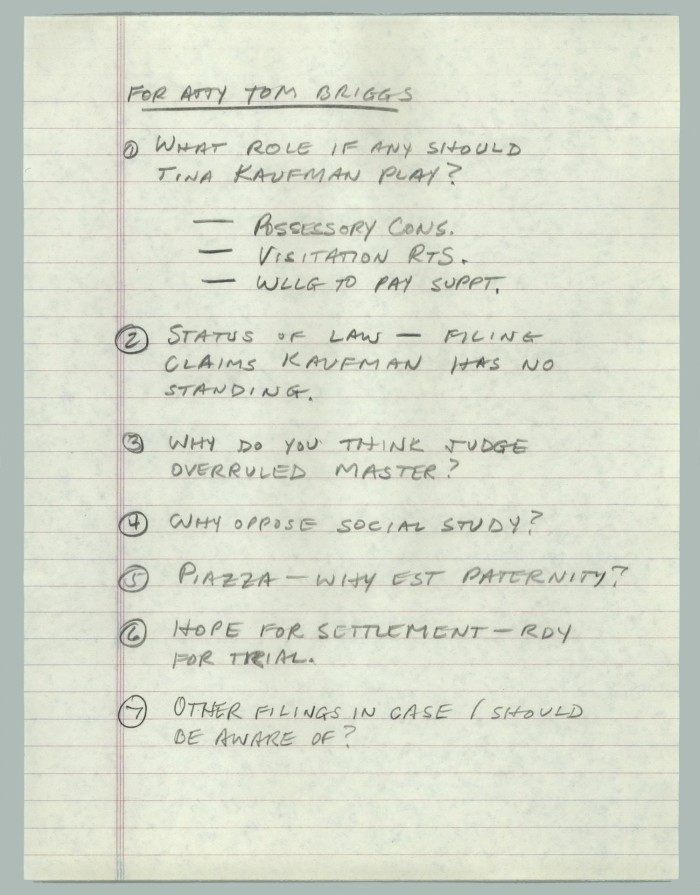 FOR ATTY TOM BRIGGS
① WHAT ROLE IF ANY SHOULD
TINA KAUFMAN PLAY?
— POSSESSORY CONS.
— VISITATION RTS.
— WLLG TO PAY SUPPT.
② STATUS OF LAW — FILING
CLAIMS KAUFMAN HAS NO
STANDING.
③ WHY DO YOU THINK JUDGE
OVERRULED MASTER?
④ WHY OPPOSE SOCIAL STUDY?
⑤ PIAZZA — WHY EST PATERNITY?
⑥ HOPE FOR SETTLEMENT — RDY
FOR TRIAL.
⑦ OTHER FILINGS IN CASE I SHOULD
BE AWARE OF?